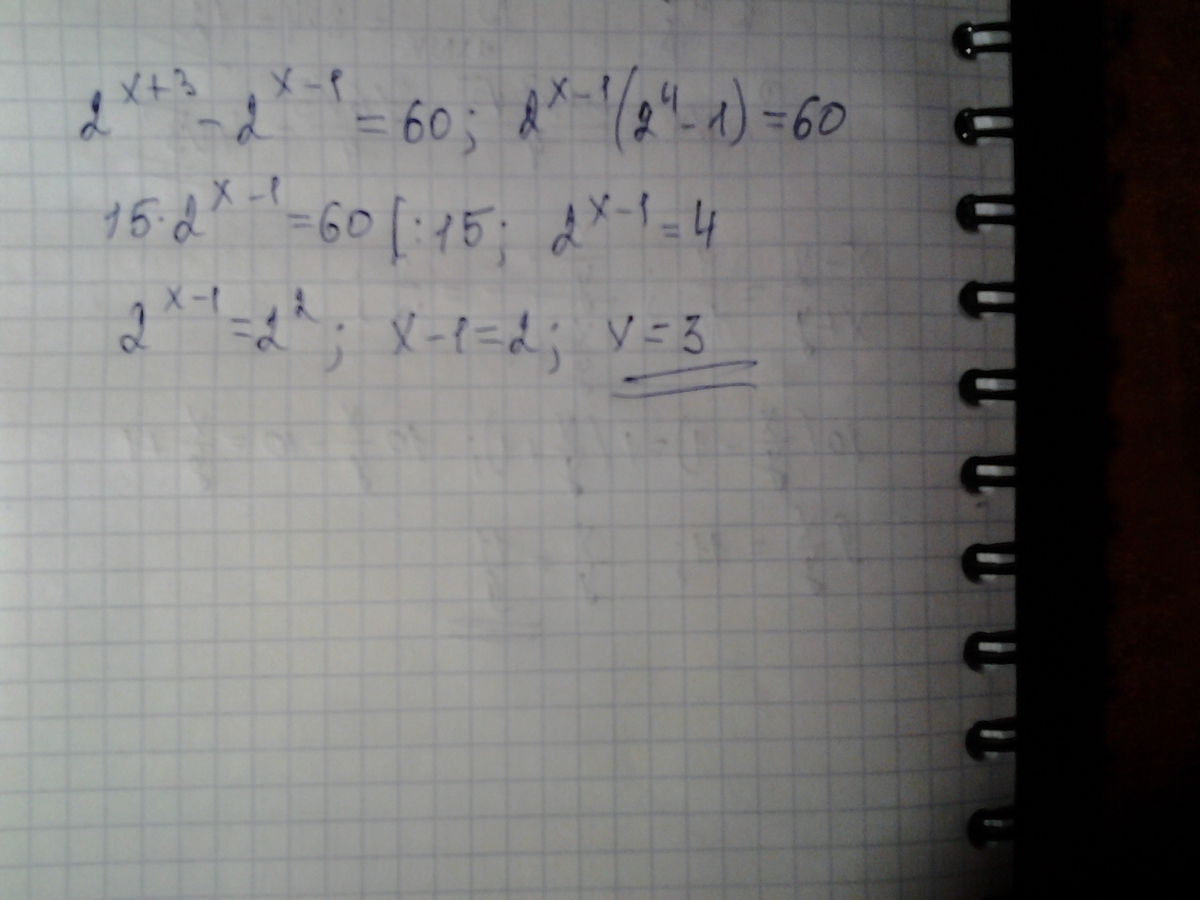 2^{x+3} - 2^{x-1} = 60; 2^{x-1}(2^4 - 1) = 60
15·2^{x-1} = 60 |:15; 2^{x-1} = 4
2^{x-1} = 2^2; x-1=2; x=3